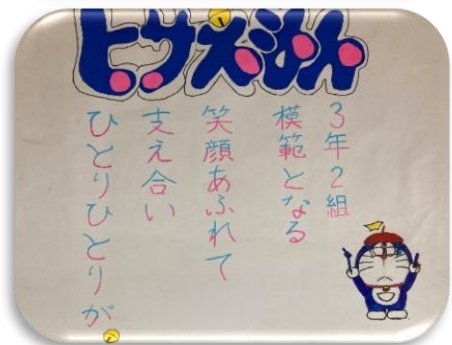 ヒサえもん
3年2組
模範となる
笑顔あふれて
支え合い
ひとりひとりが